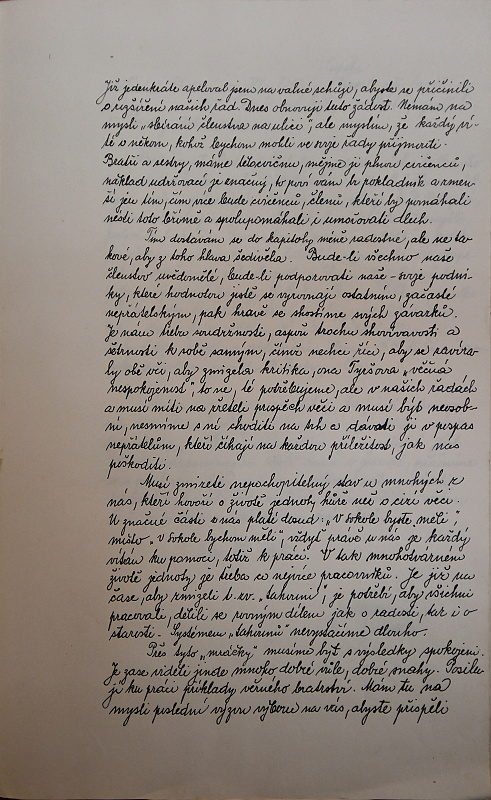 Již jedenkráte apeloval jsem na valné schůzi, abyste se přičinili
o rozšíření našich řad. Dnes obnovuji tuto žádost. Nemám na
mysli „sbírání členstva na ulici", ale myslím, že každý ví-
te o někom, kohož bychom mohli ve svoje řady přijmouti.
Bratři a sestry, máme tělocvičnu, mějme ji plnou cvičenců,
náklad udržovací je značný, to poví vám br. pokladník a zmen-
ší jen tím, čím více bude cvičenců, členů, kteří by pomáhali
nésti toto břímě a spolupomáhali i umořovati dluh.
Tím dostávám se do kapitoly méně radostné, ale ne ta-
kové, aby z toho hlava šedivěla. Bude-li všechno naše
členstvo uvědomělé, bude-li podporovati naše - svoje podni-
ky, které hodnotou jistě se vyrovnají ostatním, začasté
nepřátelským, pak hravě se zhostíme svých závazků.
Je nám třeba soudržnosti, aspoň trochu shovívavosti a
šetrnosti k sobě samým, čímž nechci říci, aby se zavíra-
ly obě oči, aby zmizela kritika, ona Tyršova „věčná
nespokojenost", to ne, té potřebujeme, ale v našich řadách
a musí míti na zřeteli prospěch věci a musí býti neosob-
ní, nesmíme s ní choditi na trh a dávati ji v pospas
nepřátelům, kteří číhají na každou příležitost, jak nás
poškoditi.
Musí zmizeti nepochopitelný stav u mnohých z
nás, kteří hovoří o životě jednoty hůře než o cizí věci.
U značné části z nás platí dosud: „V Sokole byste měli",
místo „v Sokole bychom měli", vždyť právě u nás je každý
vítán ku pomoci, totiž k práci. V tak mnohotvárném
životě jednoty je třeba co nejvíce pracovníků. Je již na
čase, aby zmizeli t. zv. „tahouni", je potřebí, aby všichni
pracovali, dělili se rovným dílem jak o radosti, tak i o
starosti. Systémem „tahounů" nevystačíme dlouho.
Přes tyto „mráčky" musíme býti s výsledky spokojeni.
Je zase viděti jinde mnoho dobré vůle, dobré snahy. Posilu-
jí ku práci příklady věrného bratrství. Mám tu na
mysli poslední výzvu výboru na vás, abyste přispěli